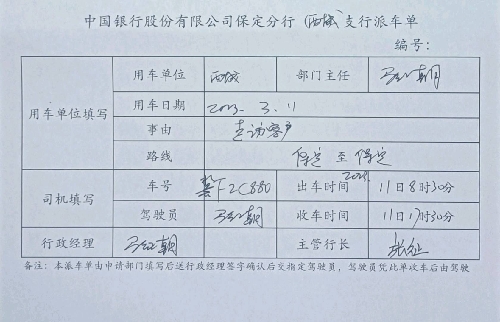 中国银行股份有限公司保定分行(西城)支行派车单
编号：
用车单位填写 用车单位 西城 部门主任
用车日期 2023. 3. 11
事由 走访客户
路线 保定 至 保定
司机填写 车号 冀F2C880 出车时间 11日8时30分
驾驶员 收车时间 11日17时30分
行政经理 主管行长
备注：本派车单由申请部门填写后送行政经理签字确认后交指定驾驶员，驾驶员凭此单收车后由驾驶